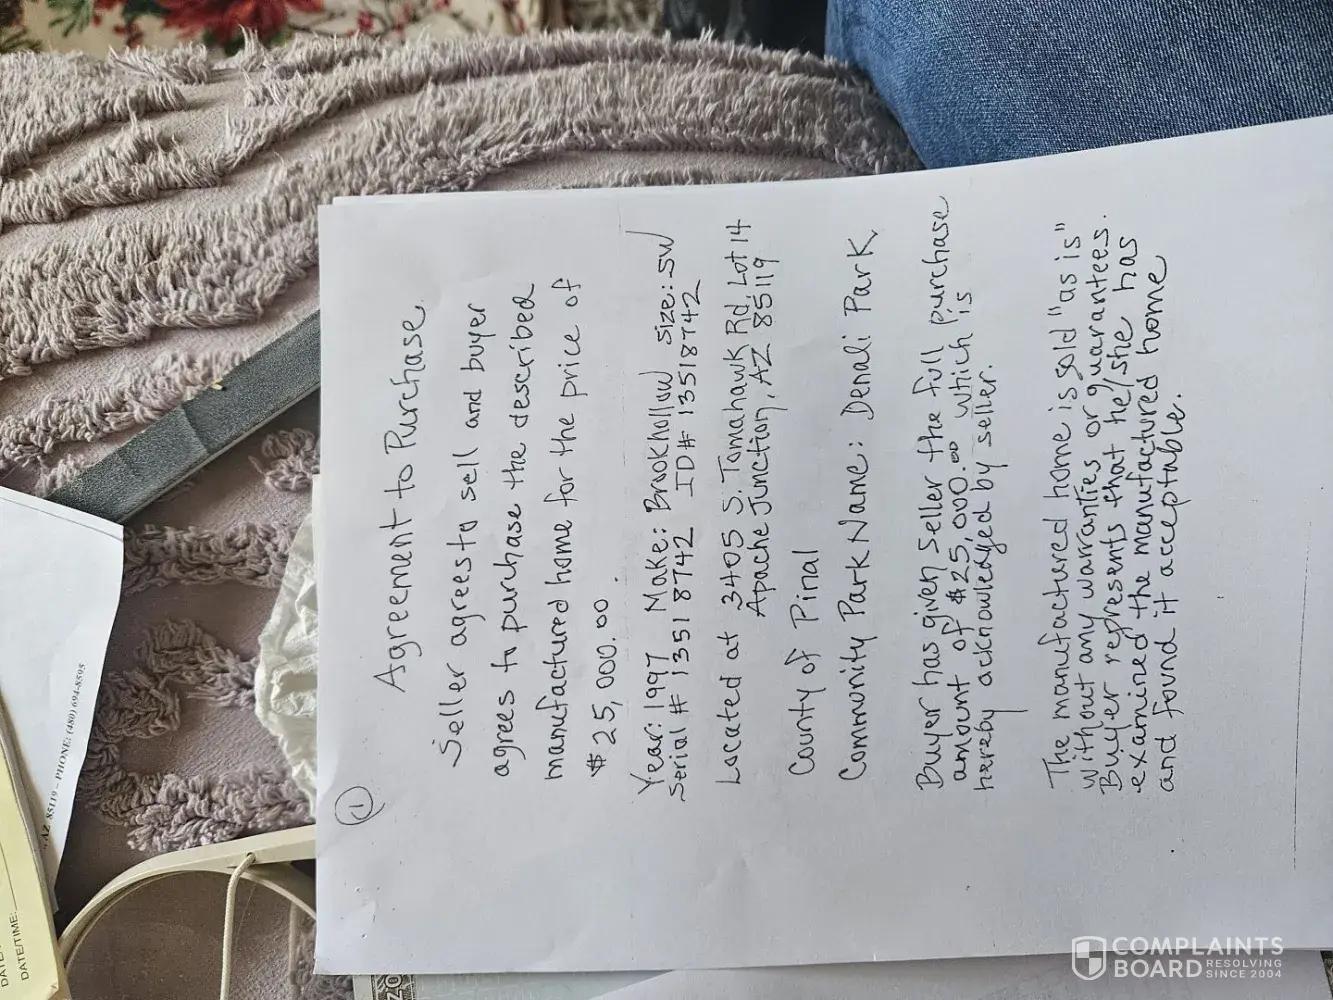 (1)
Agreement to Purchase
Seller agrees to sell and buyer
agrees to purchase the described
manufactured home for the price of
$25,000.00.
Year: 1997 Make: Brookhollow size: SW
Serial # 13518742 ID# 13518742
Located at 3405 S. Tomahawk Rd Lot 14
Apache Junction, AZ 85119
County of Pinal
Community Park Name: Denali Park
Buyer has given Seller the full purchase
amount of $25,000.00 which is
hereby acknowledged by seller.
The manufactured home is sold "as is"
without any warranties or guarantees.
Buyer represents that he/she has
examined the manufactured home
and found it acceptable.
AZ 85119 – PHONE: (480) 694-8595
DATE/TIME:
COMPLAINTS
BOARD RESOLVING
SINCE 2004